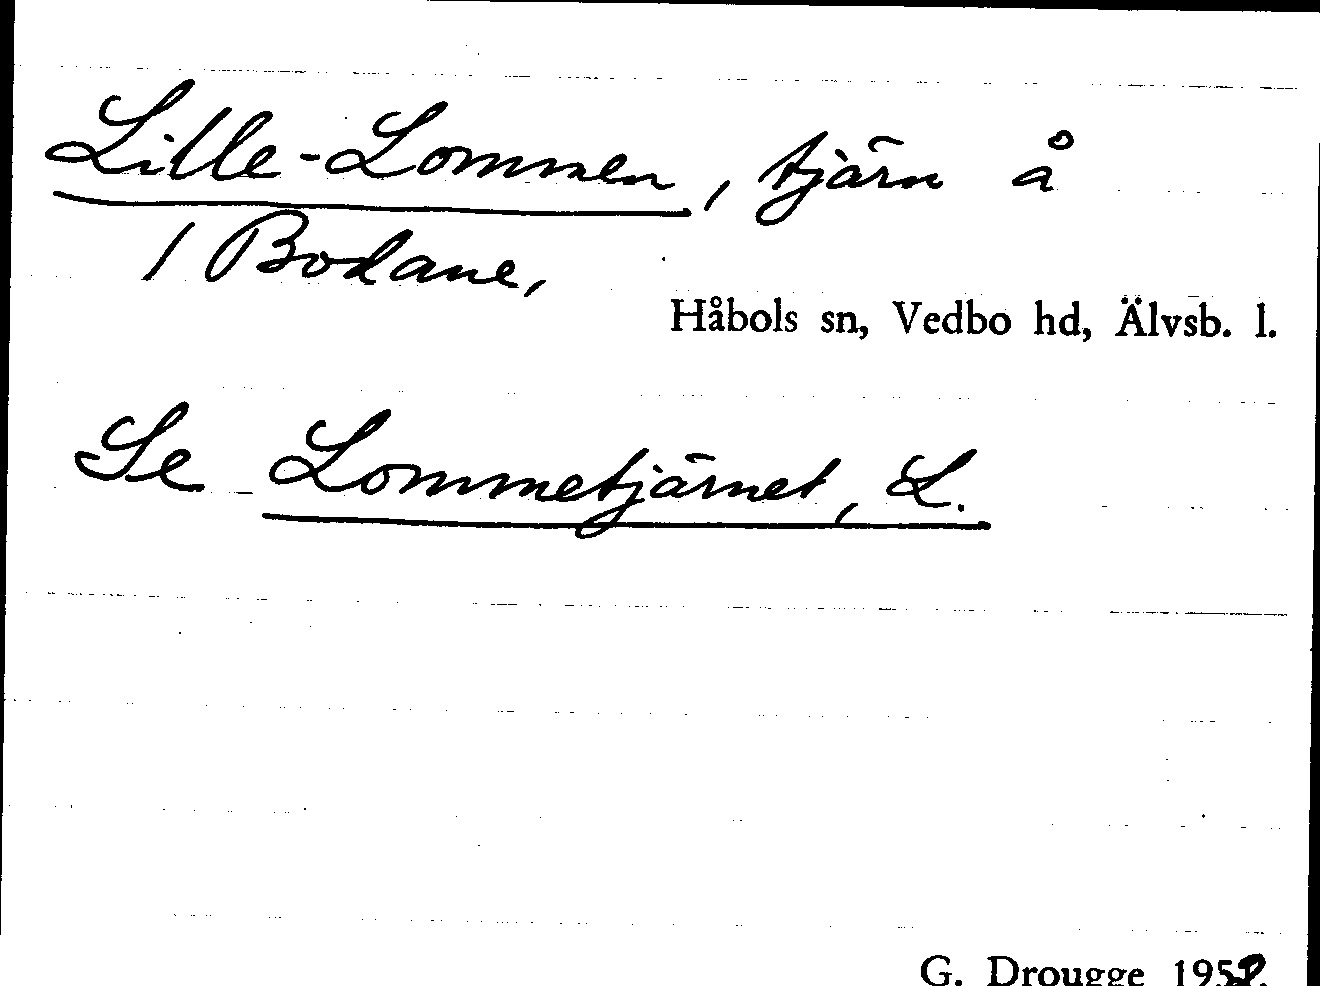 Lille-Lommen, tjärn å
1 Bodane,
Håbols sn, Vedbo hd, Älvsb. l.
Se Lommetjärnet, L.
G. Drougge